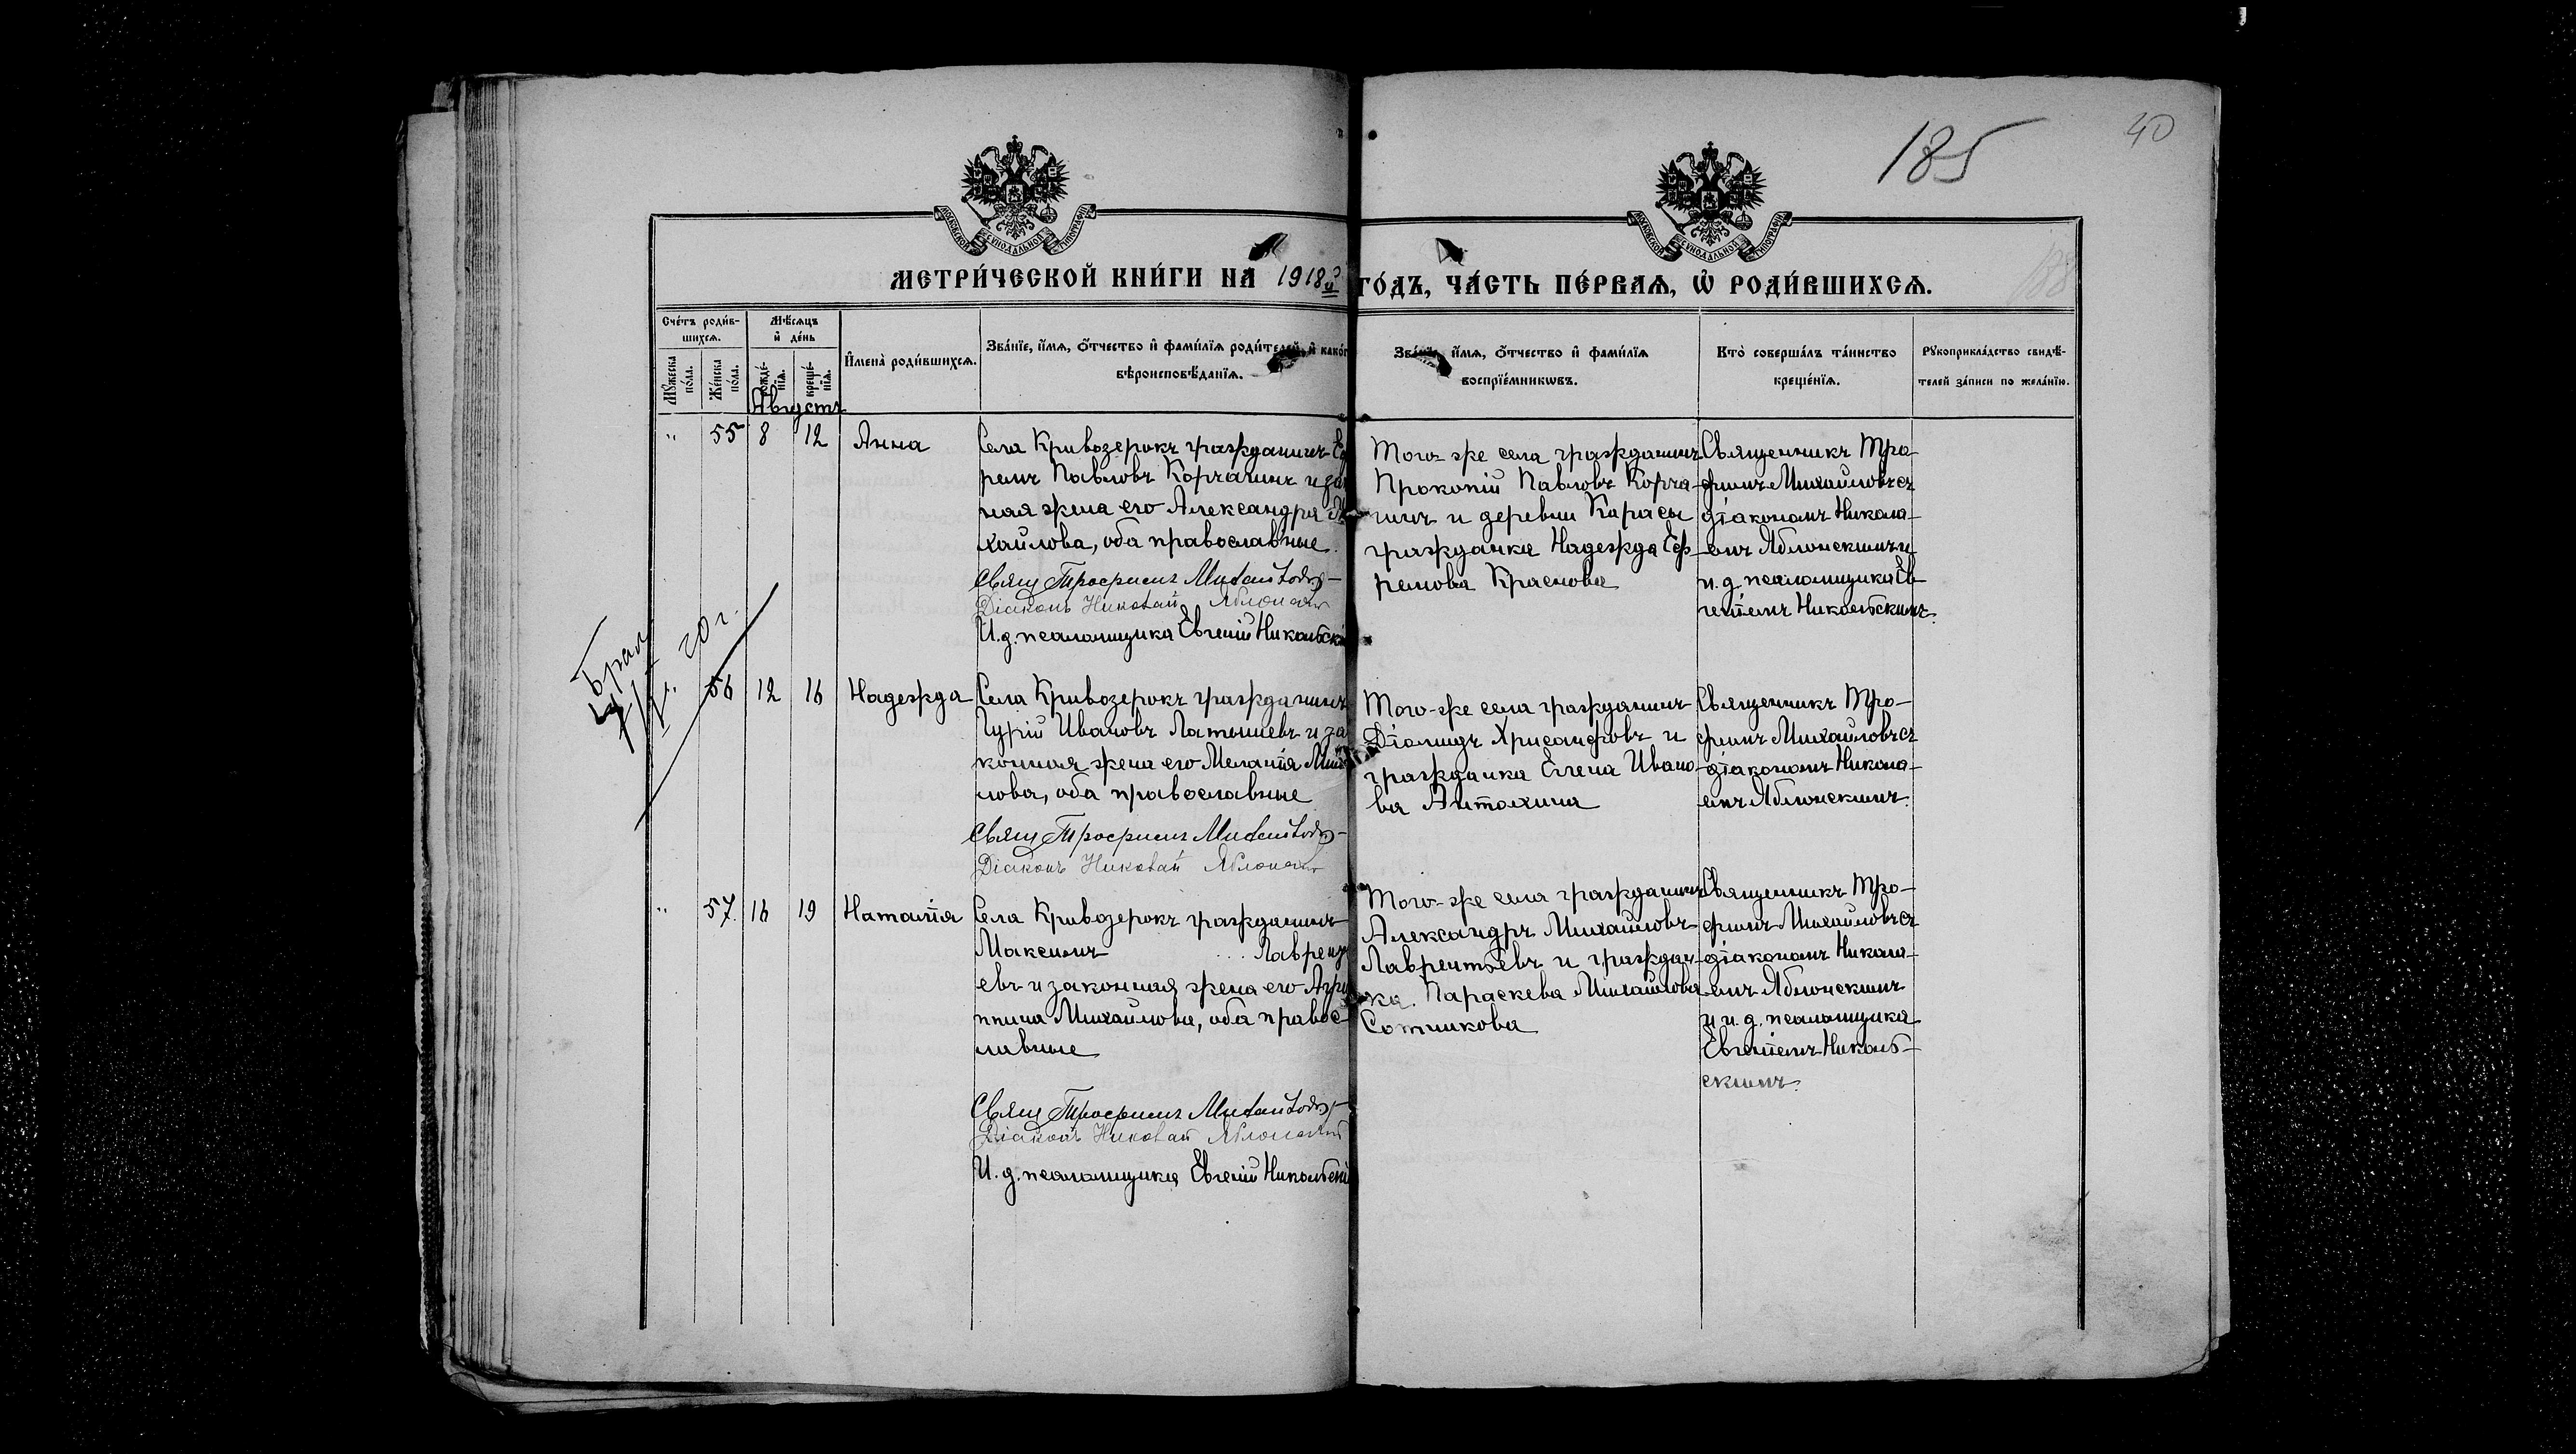 185
40
МОСКОВСКОЙ СУНОДАЛЬНОЙ ТИПОГРАФІИ
МОСКОВСКОЙ СУНОДАЛЬНОЙ ТИПОГРАФІИ
МЕТРИ́ЧЕСКОЙ КНИ́ГИ НА 1918й ГО́ДЪ, ЧА́СТЬ ПЕ́РВАѦ, Ѡ҆ РОДИ́ВШИХСѦ.
Сче́тъ роди́в-
шихсѧ.
Мꙋ́жеска по́ла.
Же́нска по́ла.
Мѣ́сѧцъ
и҆ де́нь
Рожде́-
нїѧ.
креще́-
нїѧ.
Августъ
И҆мена̀ роди́вшихсѧ.
Зва́нїе, и҆́мѧ, ѻ҆́тчество и҆ фами́лїѧ роди́телей, и҆ како́г
вѣроисповѣ́данїѧ.
Зва́нїе, и҆́мѧ, ѻ҆́тчество и҆ фами́лїѧ
воспрїе́мникѡвъ.
Кто̀ соверша́лъ та́инство
креще́нїѧ.
Рꙋкоприкла́дство свидѣ́-
телей за́писи по жела́нїю.
" 55 8 12 Анна
Села Кривозерокъ гражданинъ Еф
ремъ Павловъ Корчагинъ и зак
ная жена его Александра Ми
хайлова, оба православные.
Свящ Трофимъ Михайловъ
Діаконъ Николай Яблонскій
И.д. псаломщика Евгеній Никольскі
Того-же села гражданинъ
Прокопій Павловъ Корча-
гинъ и деревни Карасы
гражданка Надежда Еф-
ремова Краснова
Священникъ Тро-
фимъ Михайловъ съ
діакономъ Никола-
емъ Яблонскимъ и
и.д. псаломщика Ев-
геніемъ Никольскимъ.
Бракъ
20 г.
" 56 12 16 Надежда
Села Кривозерокъ гражданинъ
Гурій Ивановъ Латышевъ и за
конная жена его Меланія Миха
лова, оба православные
Свящ Трофимъ Михайловъ
Діаконъ Николай Яблонскій
Того-же села гражданинъ
Діомидъ Хрисанфовъ и
гражданка Елена Ивано-
ва Антохина
Священникъ Тро-
фимъ Михайловъ съ
діакономъ Никола-
емъ Яблонскимъ.
" 57. 16 19 Наталія
Села Кривозерокъ гражданинъ
Максимъ ... Лаврент
евъ и законная жена его Агри
ппина Михайлова, оба правос-
лавные
Свящ Трофимъ Михайловъ
Діаконъ Николай Яблонскій
И.д. псаломщика Евгеній Никольскі
Того-же села гражданинъ
Александръ Михайловъ
Лаврентьевъ и граждан-
ка Параскева Михайлова
Сотникова
Священникъ Тро-
фимъ Михайловъ съ
діакономъ Никола-
емъ Яблонскимъ
и и.д. псаломщика
Евгеніемъ Николь-
скимъ.